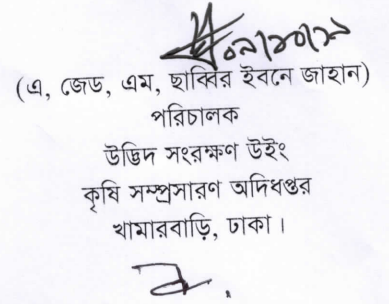 ০২/১০/১৯
(এ, জেড, এম, ছাব্বির ইবনে জাহান)
পরিচালক
উদ্ভিদ সংরক্ষণ উইং
কৃষি সম্প্রসারণ অদিধপ্তর
খামারবাড়ি, ঢাকা।